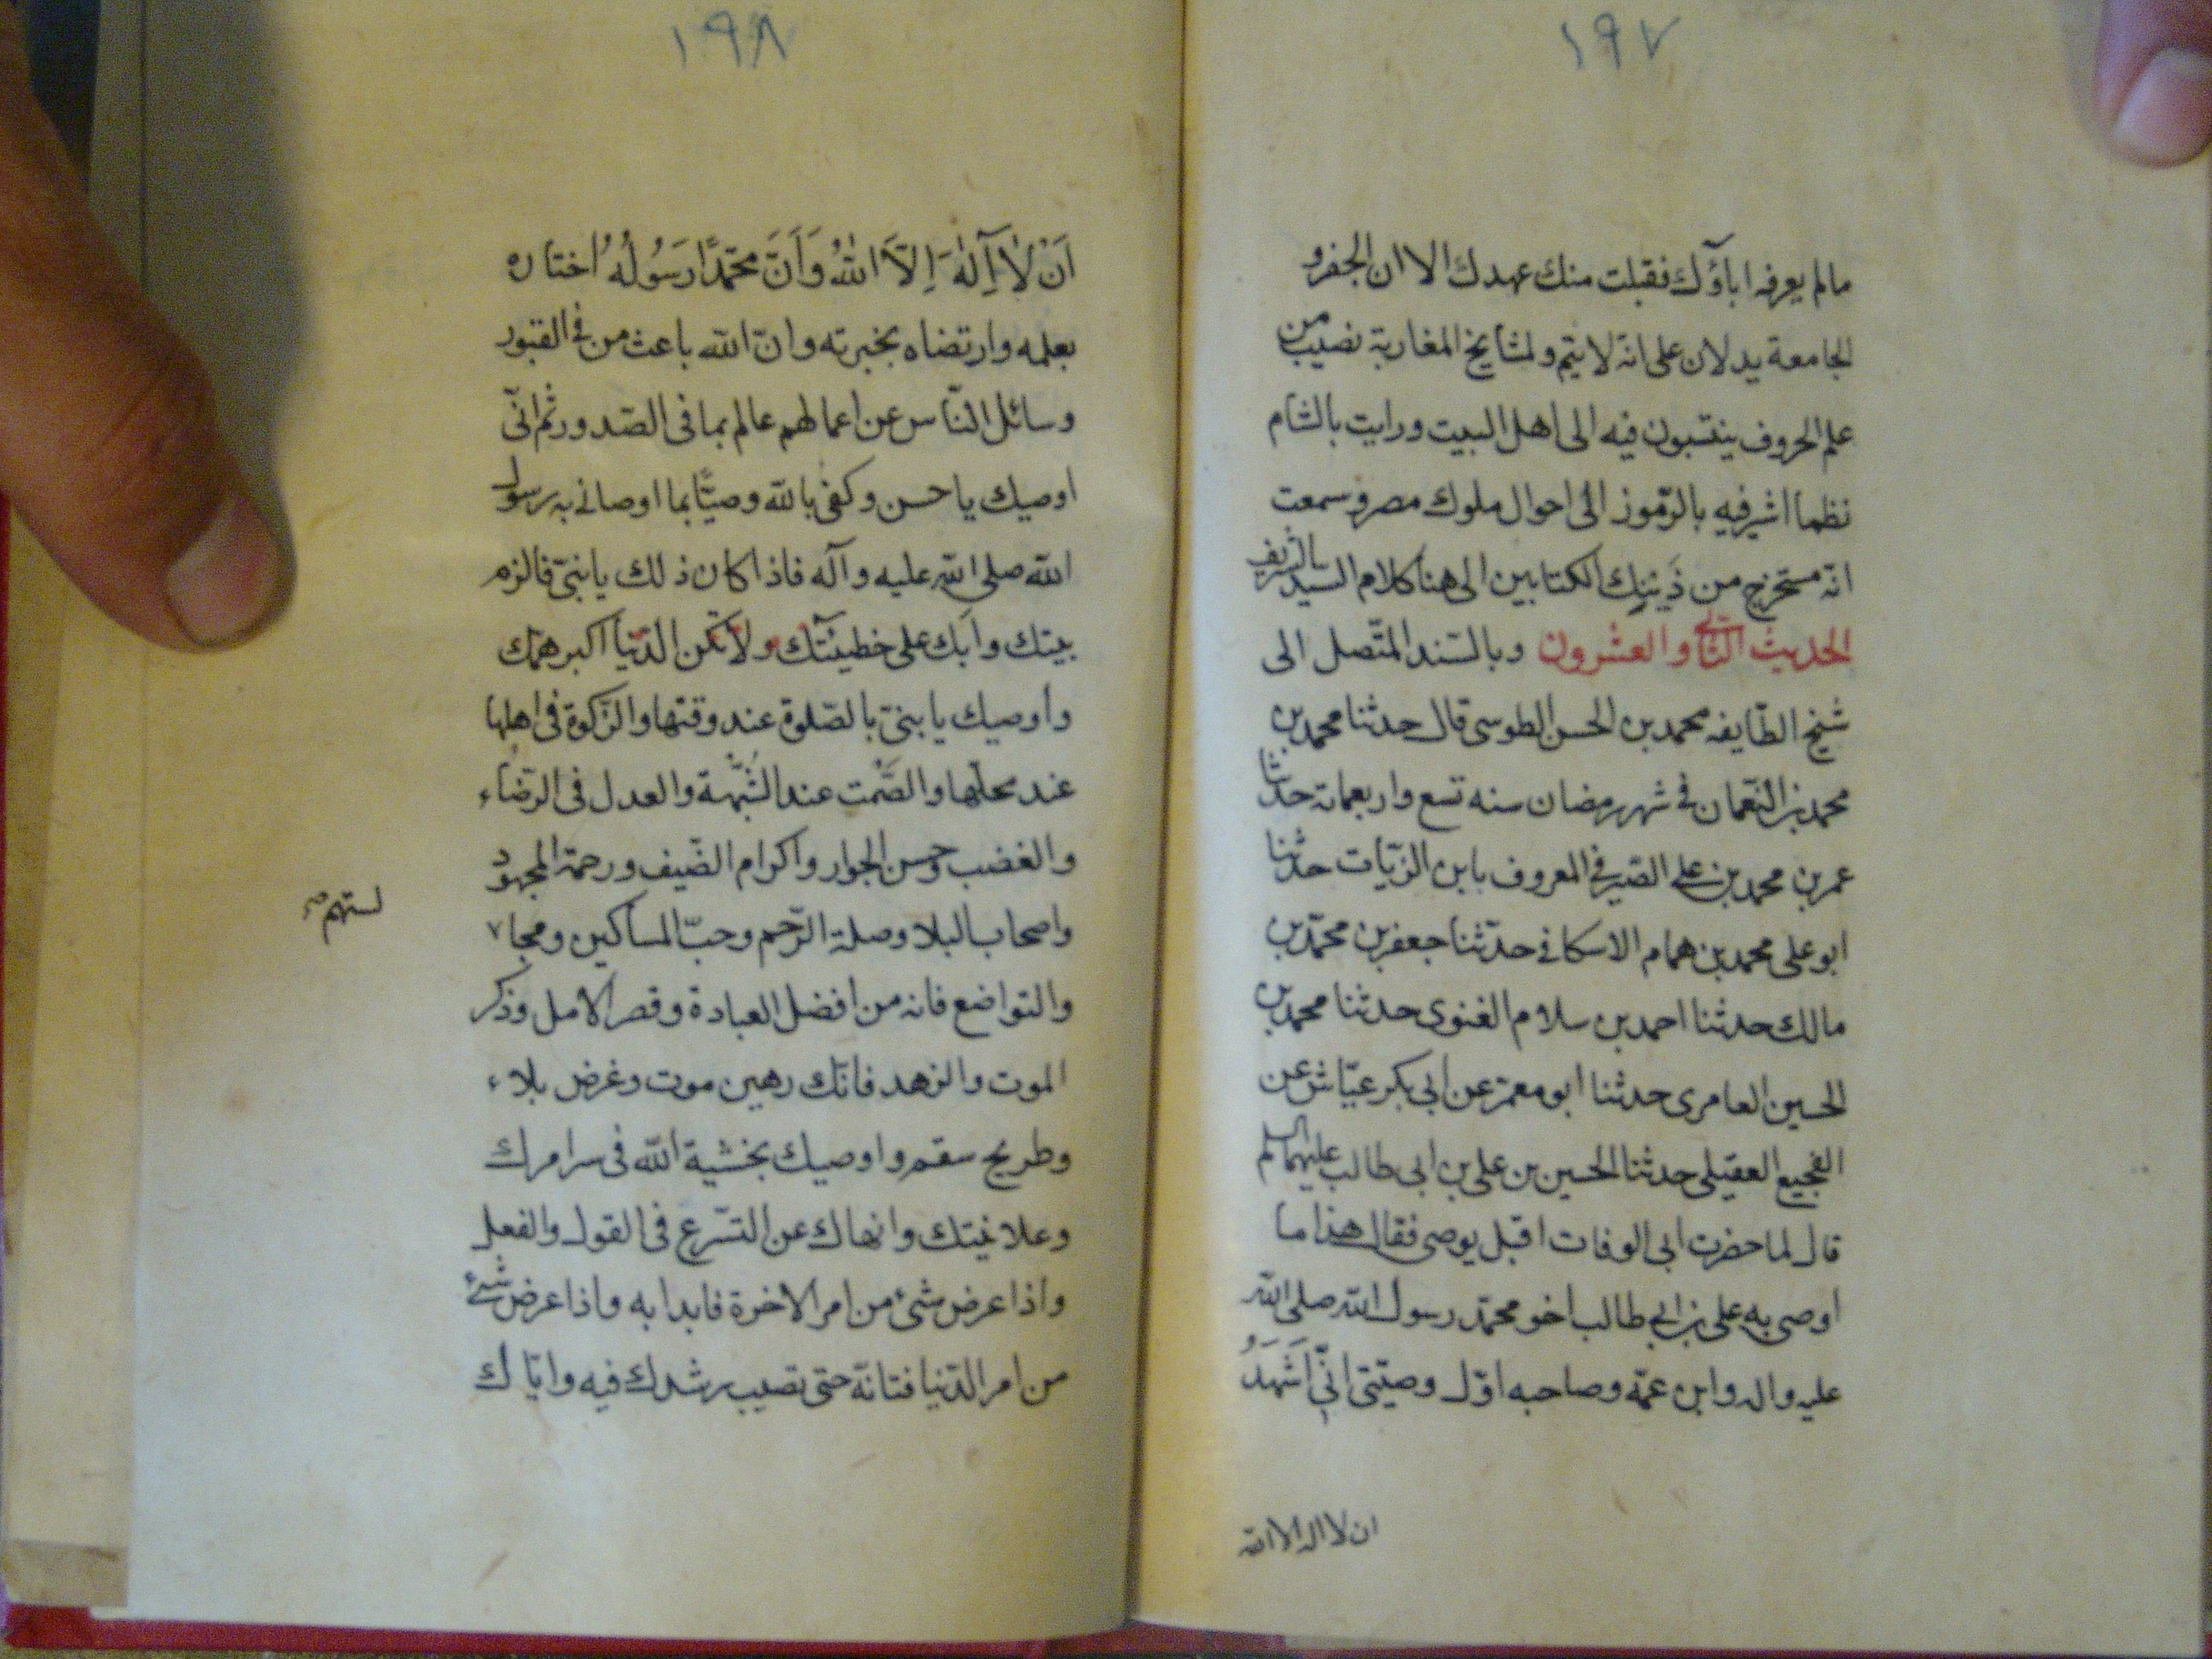 ١٩٧
مالم يعرفه اباؤك فقبلت منك عهدك الا ان الجفر و
الجامعة يدلان على انه لا يتم ولمشايخ المغاربة نصيب من
علم الحروف ينتسبون فيه الى اهل البيت ورايت بالشام
نظما اشير فيه بالرّموز الى احوال ملوك مصر وسمعت
انّه مستخرج من ذَينك الكتابين الى هنا كلام السيد الشريف
الحديث والعشرون وبالسّند المتّصل الى
شيخ الطّايفه محمد بن الحسن الطوسى قال حدثنا محمد بن
محمد بن النّعمان فى شهر رمضان سنه تسع واربعماته حدثنا
عمر بن محمد بن على الصّيرفى المعروف بابن الزيّات حدثنا
ابو على محمد بن همام الاسكافى حدّثنا جعفر بن محمّد بن
مالك حدثنا احمد بن سلام الغنوى حدثنا محمد بن
الحسين العامرى حدثنا ابو معمر عن ابى بكر عيّاش عن
الفجيع العقيلى حدثنا الحسين بن على بن ابى طالب عليهما السلم
قال لما حضرت ابى الوفات اقبل يوصى فقال هذا ما
اوصى به على بن ابى طالب اخو محمّد رسول الله صلى الله
عليه واله وابن عمّه وصاحبه اوّل وصيّتى انّى اَشْهَدُ
ان لا اله الا الله
١٩٨
اَنْ لاَ اِلٰهَ اِلاَّ اللهُ وَاَنَّ محمّدًا رَسُولُهُ اختاره
بعلمه وارتضاه بخبرته وانّ الله باعث من فى القبور
وسائل النّاس عن اعمالهم عالم بما فى الصّدور ثم انّى
اوصيك يا حسن وكفى بالله وصيًّا بما اوصانى به رسول
الله صلى الله عليه وآله فاذا كان ذلك يا بنىّ فالزم
بيتك وابك على خطيئتك ولا تكن الدّنيا اكبر همّك
واوصيك يا بنىّ بالصّلوة عند وقتها والزّكوة فى اهلها
عند محلّها والصَّمت عند الشُّبهة والعدل فى الرّضاء
والغضب وحسن الجوار واكرام الضّيف ورحمة المجهود
واصحاب البلا وصلة الرّحم وحبّ المساكين ومجا
لستهم صح
والتواضع فانه من افضل العبادة وقصر الامل وذكر
الموت والزهد فانّك رهين موت وغرض بلاء
وطريح سقم واوصيك بخشية الله فى سرامرك
وعلانيتك وانهاك عن التسّرع فى القول والفعل
واذا عرض شئ من امر الاخرة فابدا به واذا عرض شئ
من امر الدّنيا فتانّه حتى تصيب رشدك فيه وايّاك